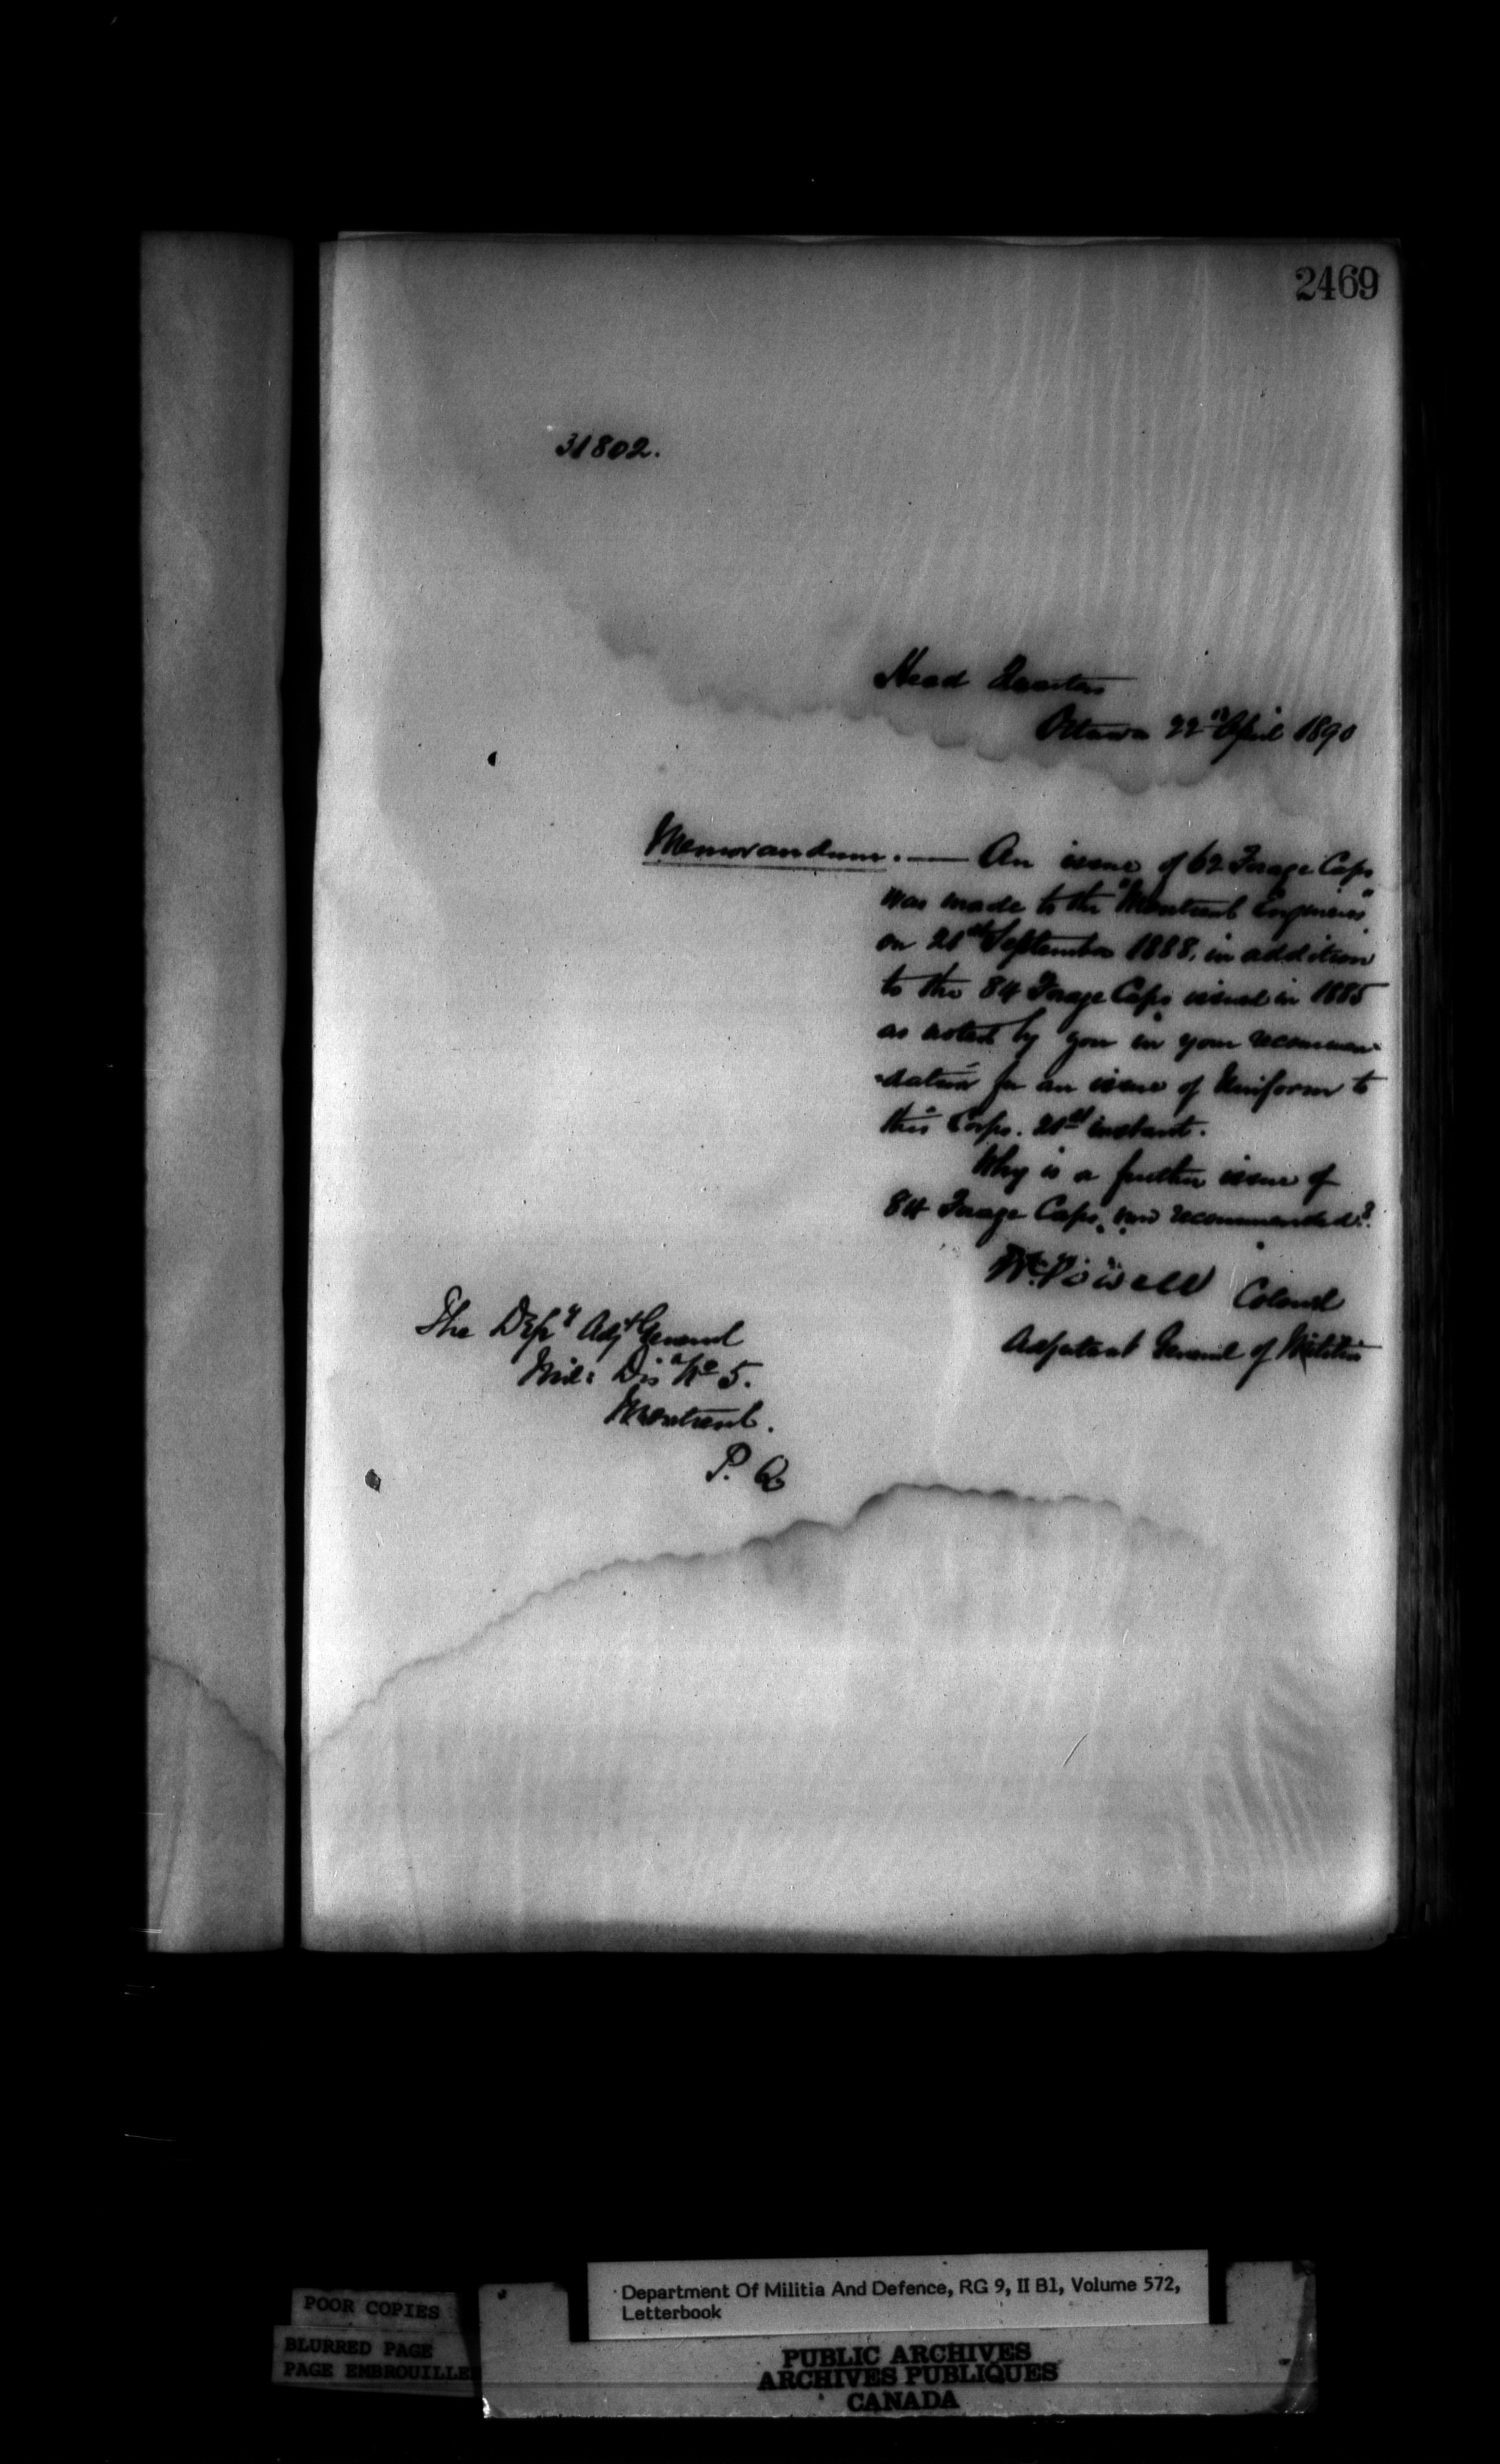 2469
31802.
Head Quarters
Ottawa 22nd April 1890
Memorandum. — An issue of 62 Forage Caps
was made to the "Montreal Engineers"
on 21st September 1888, in addition
to the 84 Forage Caps issued in 1885
as noted by you in your recommen-
-dation for an issue of Uniform to
this Corps. 21st instant.
Why is a further issue of
84 Forage Caps, now recommended?
W. Powell Colonel
Adjutant General of Militia
The Depy Adjt General
Mil: Dis No 5.
Montreal.
P. Q
Department Of Militia And Defence, RG 9, II B1, Volume 572,
Letterbook
POOR COPIES
BLURRED PAGE
PAGE EMBROUILLE
PUBLIC ARCHIVES
ARCHIVES PUBLIQUES
CANADA